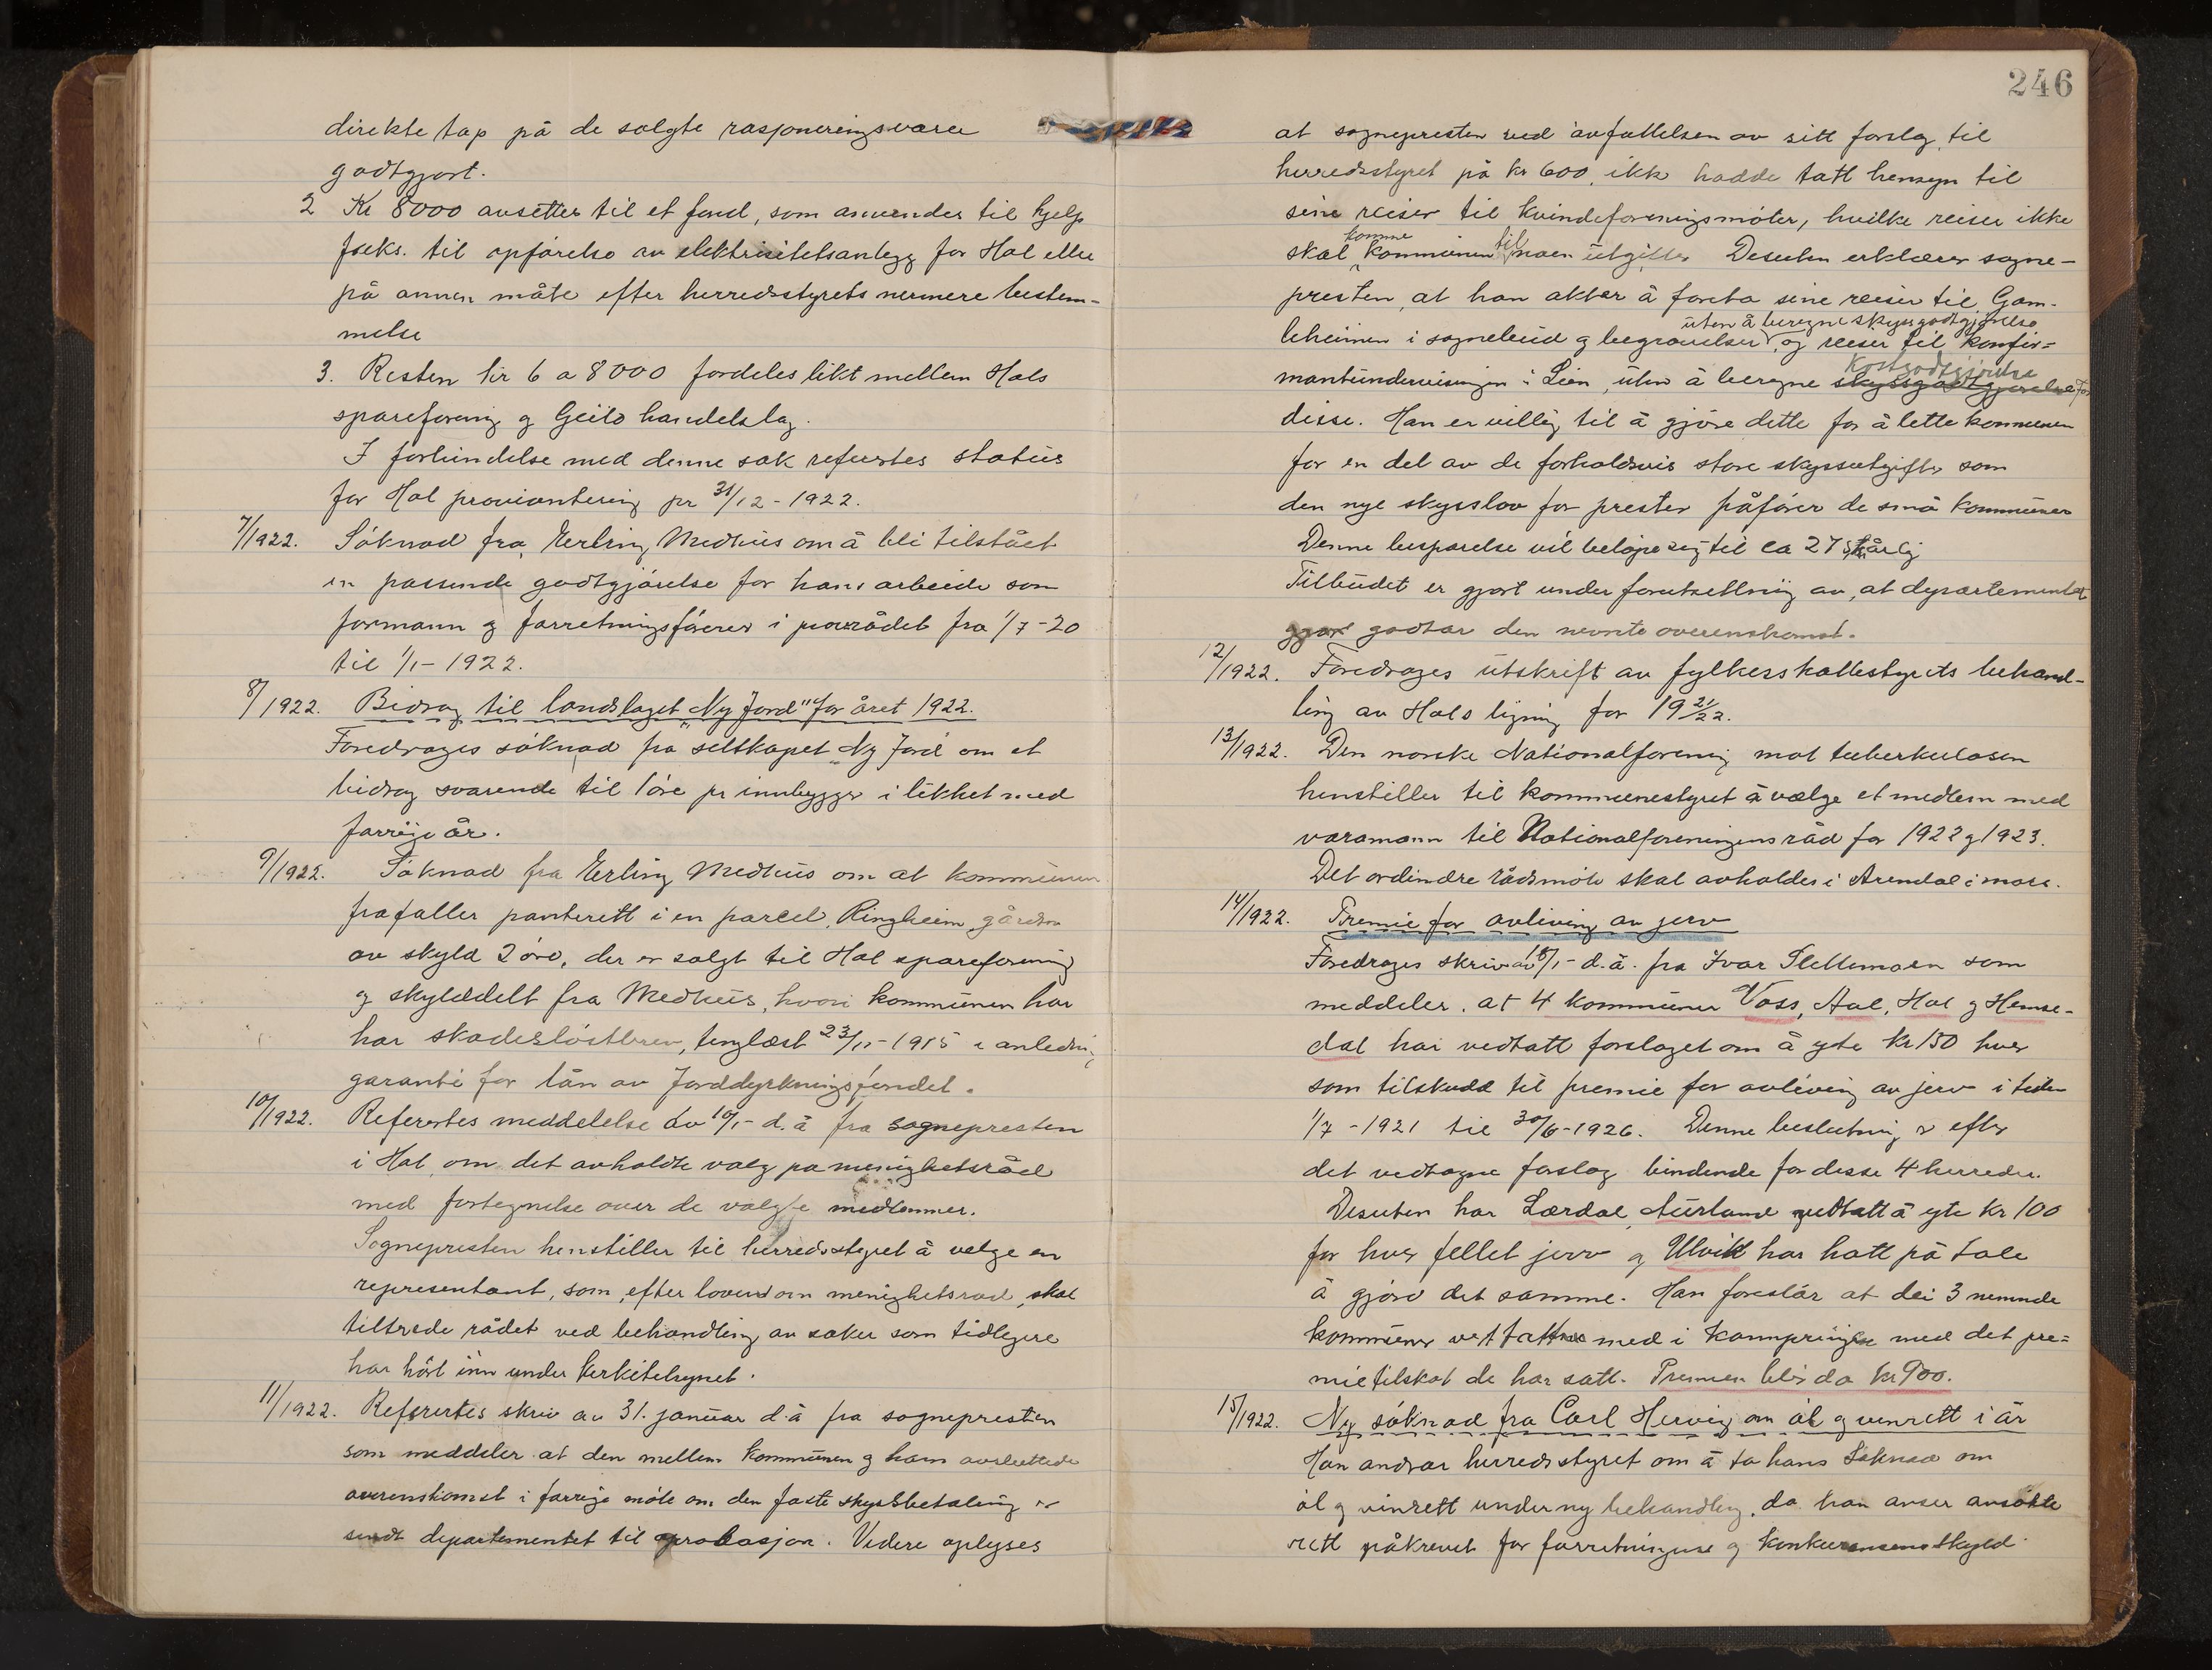 direkte tap på de solgte rasjoneringsvarer
godtgjort.
2 Kr 8000 avsettes til et fond, som anvendes til hjelp
f.eks. til opførelse av elektrisitetsanlegg for Hol eller
på annen måte efter herredsstyrets nermere bestem-
melse
3. Resten kr 6 a 8000 fordeles likt mellem Hols
spareforening og Geilo handelslag.
I forbindelse med denne sak refertes status
for Hol proviantering pr 31/12-1922.
7/1922. Søknad fra Erling Medhus om å bli tilstået
en passende godtgjørelse for hans arbeide som
formann og forretningsfører i provrådet fra 1/7-20
til 1/1-1922.
8/1922. Bidrag til landslaget "Ny Jord" for året 1922.
Foredrages søknad fra selskapet "Ny Jord" om et
bidrag svarende til 1 øre pr innbygger i likhet med
forrige år.
9/1922. Søknad fra Erling Medhus om at kommunen
frafaller panterett i en parcel, Ringheim, gården
av skyld 2 øre, der er solgt til Hol spareforening
og skylddelt fra Medhus, hvori kommunen har
har skadesløstbrev, tinglæst 23/11-1915 i anledning
garanti for lån av Jorddyrkningsfondet.
10/1922. Refertes meddelelse av 10/1- d.å fra sognepresten
i Hol, om det avholdte valg på menighetsråd
med fortegnelse over de valgte medlemmer.
Sognepresten henstiller til herredsstyret å velge en
representant, som, efter loven om menighetsråd, skal
tiltrede rådet ved behandling av saker som tidligere
har hørt inn under kirketilsynet.
11/1922. Refertes skriv av 31. januar d.å fra sognepresten
som meddeler at den mellem kommunen og ham avsluttede
overenskomst i forrige møte om den faste skyssbetaling er
sendt departementet til aprobasjon. Videre oplyses
246
at sognepresten ved avfattelsen av sitt forslag til
herredsstyret på kr 600, ikke hadde tatt hensyn til
sine reiser til kvindeforeningsmøter, hvilke reiser ikke
komme til
skal kommunen noen utgifter Desuten erklærer sogne-
presten, at han akter å foreta sine reiser til Gam-
uten å beregne skyssgodtgjørelse
leheimen i sognebud og begravelser, og reiser til konfir-
kostgodtgjørelse
mantundervisningen i Lien, uten å beregne skyssgodtgjørelse for
disse. Han er villig til å gjøre dette for å lette kommunen
for en del av de forholdsvis store skyssutgifter som
den nye skysslov for prester påfører de små kommuner
Denne besparelse vil beløpe seg til ca 275 kr årlig
Tilbudet er gjort under forutsetning av, at departementet
godtar den nevnte overenskomst.
12/1922. Foredrages utskrift av fylkesskattestyrets behand-
ling av Hols ligning for 19 21/22.
13/1922. Den norske Nationalforening mot tuberkulosen
henstiller til kommunestyret å vælge et medlem med
varamann til Nationalforeningens råd for 1922 og 1923.
Det ordinære rådsmøte skal avholdes i Arendal i mars.
14/1922. Premie for avliving av jerv
Foredrages skriv av 18/1- d.å. fra Ivar Slettemoen som
meddeler, at 4 kommuner Voss, Aal, Hol og Hemse-
dal har vedtatt forslaget om å yte kr 150 hver
som tilskudd til premie for avliving av jerv i tiden
1/7-1921 til 30/6-1926. Denne beslutning er efter
det vedtagne forslag bindende for disse 4 herreder.
Desuten har Lærdal, Aurland vedtatt å yte kr 100
for hver fellet jerv og Ulvik har hatt på tale
å gjøre det samme. Han foreslår at dei 3 nemnde
kommuner vert tatt med i kunngjøringen med det pre-
mietilskot de har satt. Premien blir da kr 900.
15/1922. Ny søknad fra Carl Hervig om øl og vinrett i år
Han andrar herredsstyret om å ta hans søknad om
øl og vinrett under ny behandling, da han anser ansøkte
rett påkrevet for forretningens og konkurransens skyld